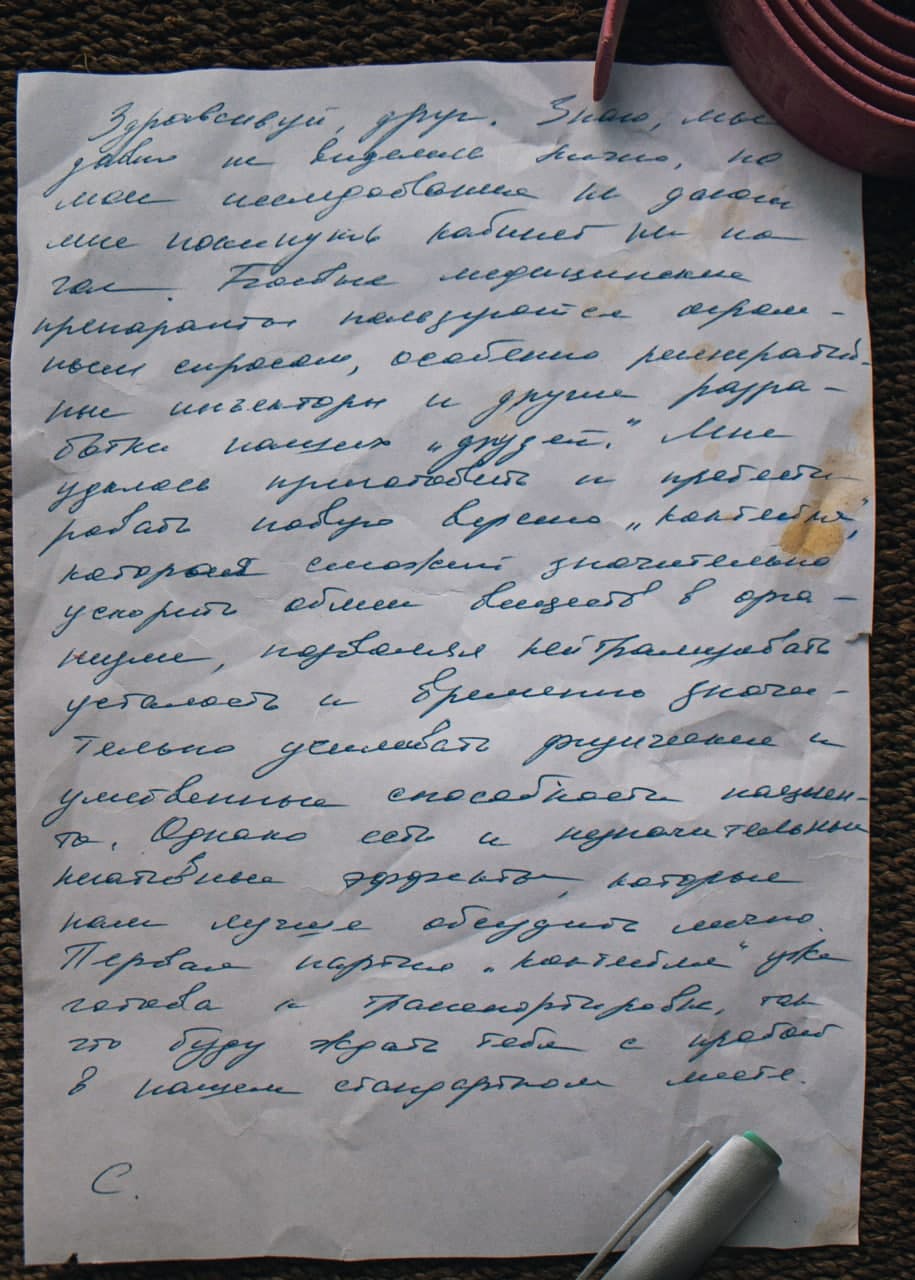 Здравствуй, друг. Знаю, мы
давно не виделись лично, но
мои исследования не дают
мне покинуть кабинет ни на
час. Боевые медицинские
препараты пользуются огром-
ным спросом, особенно регенератив-
ные инъекторы и другие разра-
ботки наших „друзей.“ Мне
удалось приготовить и протести
ровать новую версию „коктейля“,
который сможет значительно
ускорить обмен веществ в орга-
низме, позволяя нейтрализовать
усталость и временно значи-
тельно усиливать физические и
умственные способности пациен-
та. Однако есть и незначительные
негативные эффекты, которые
нам лучше обсудить лично.
Первая партия „коктейля“ уже
готова к транспортировке, так
что буду ждать тебя с пробой
в нашем стандартном месте.
С.